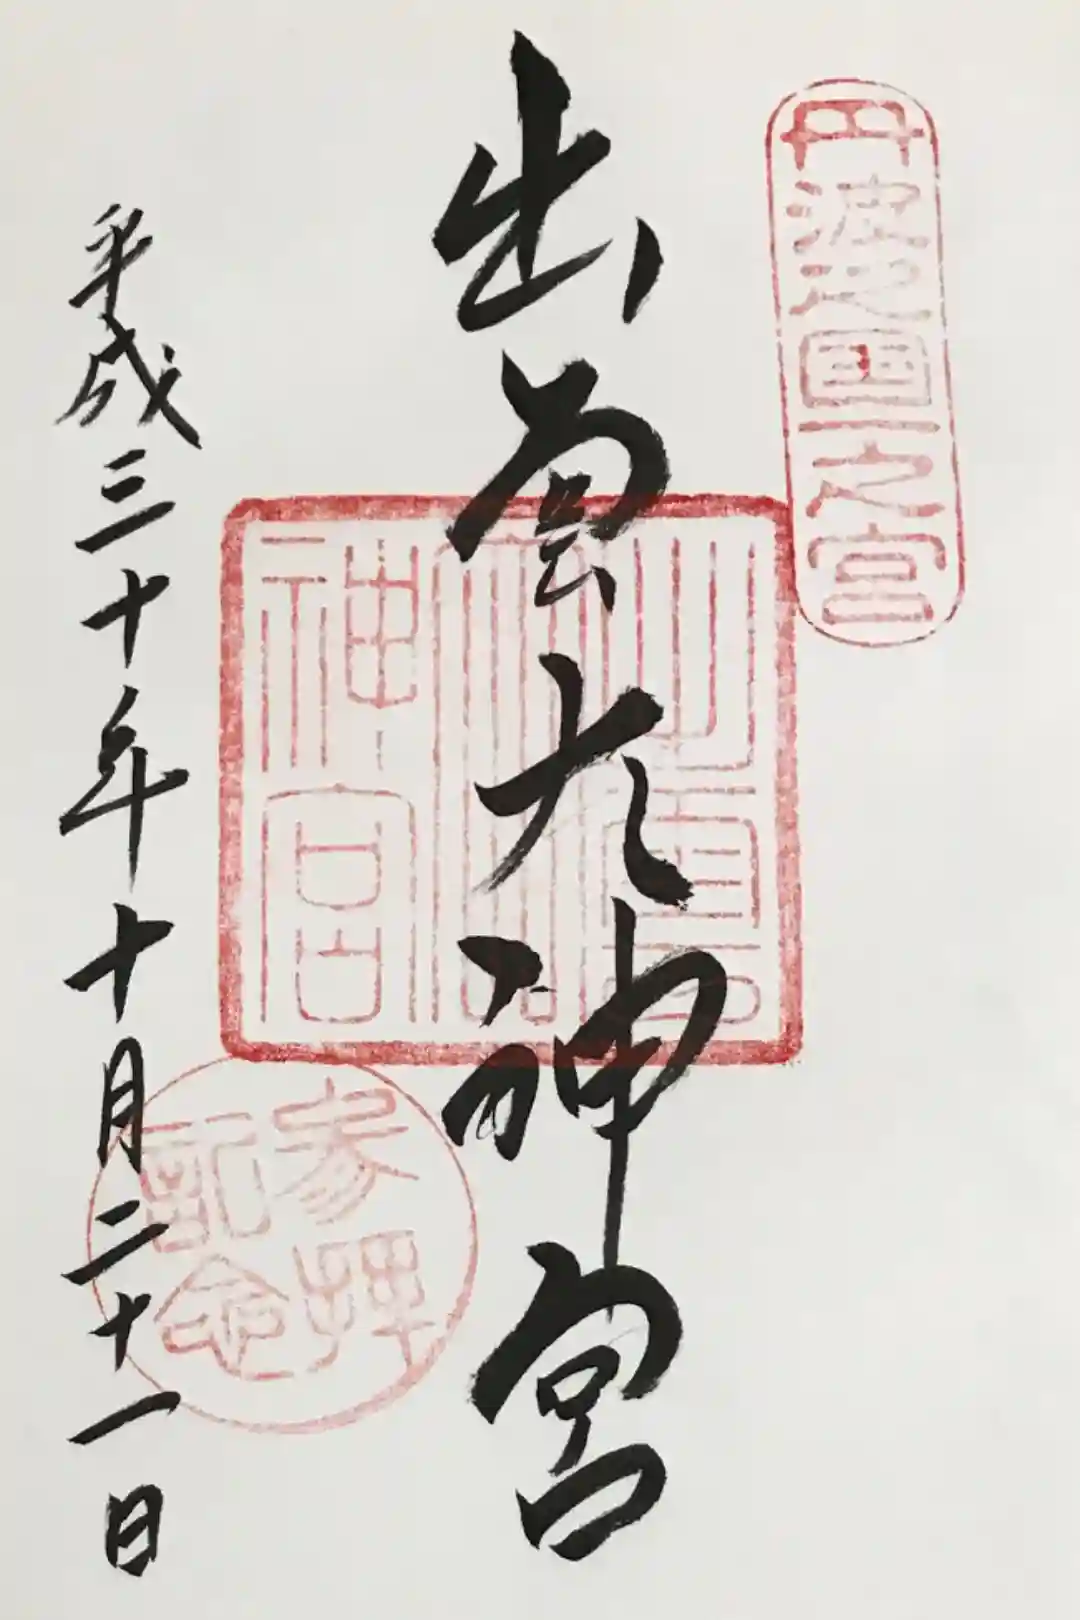 丹波之国一之宮
出雲大神宮
出雲
神宮
参拝
記念
平成三十年十月二十一日